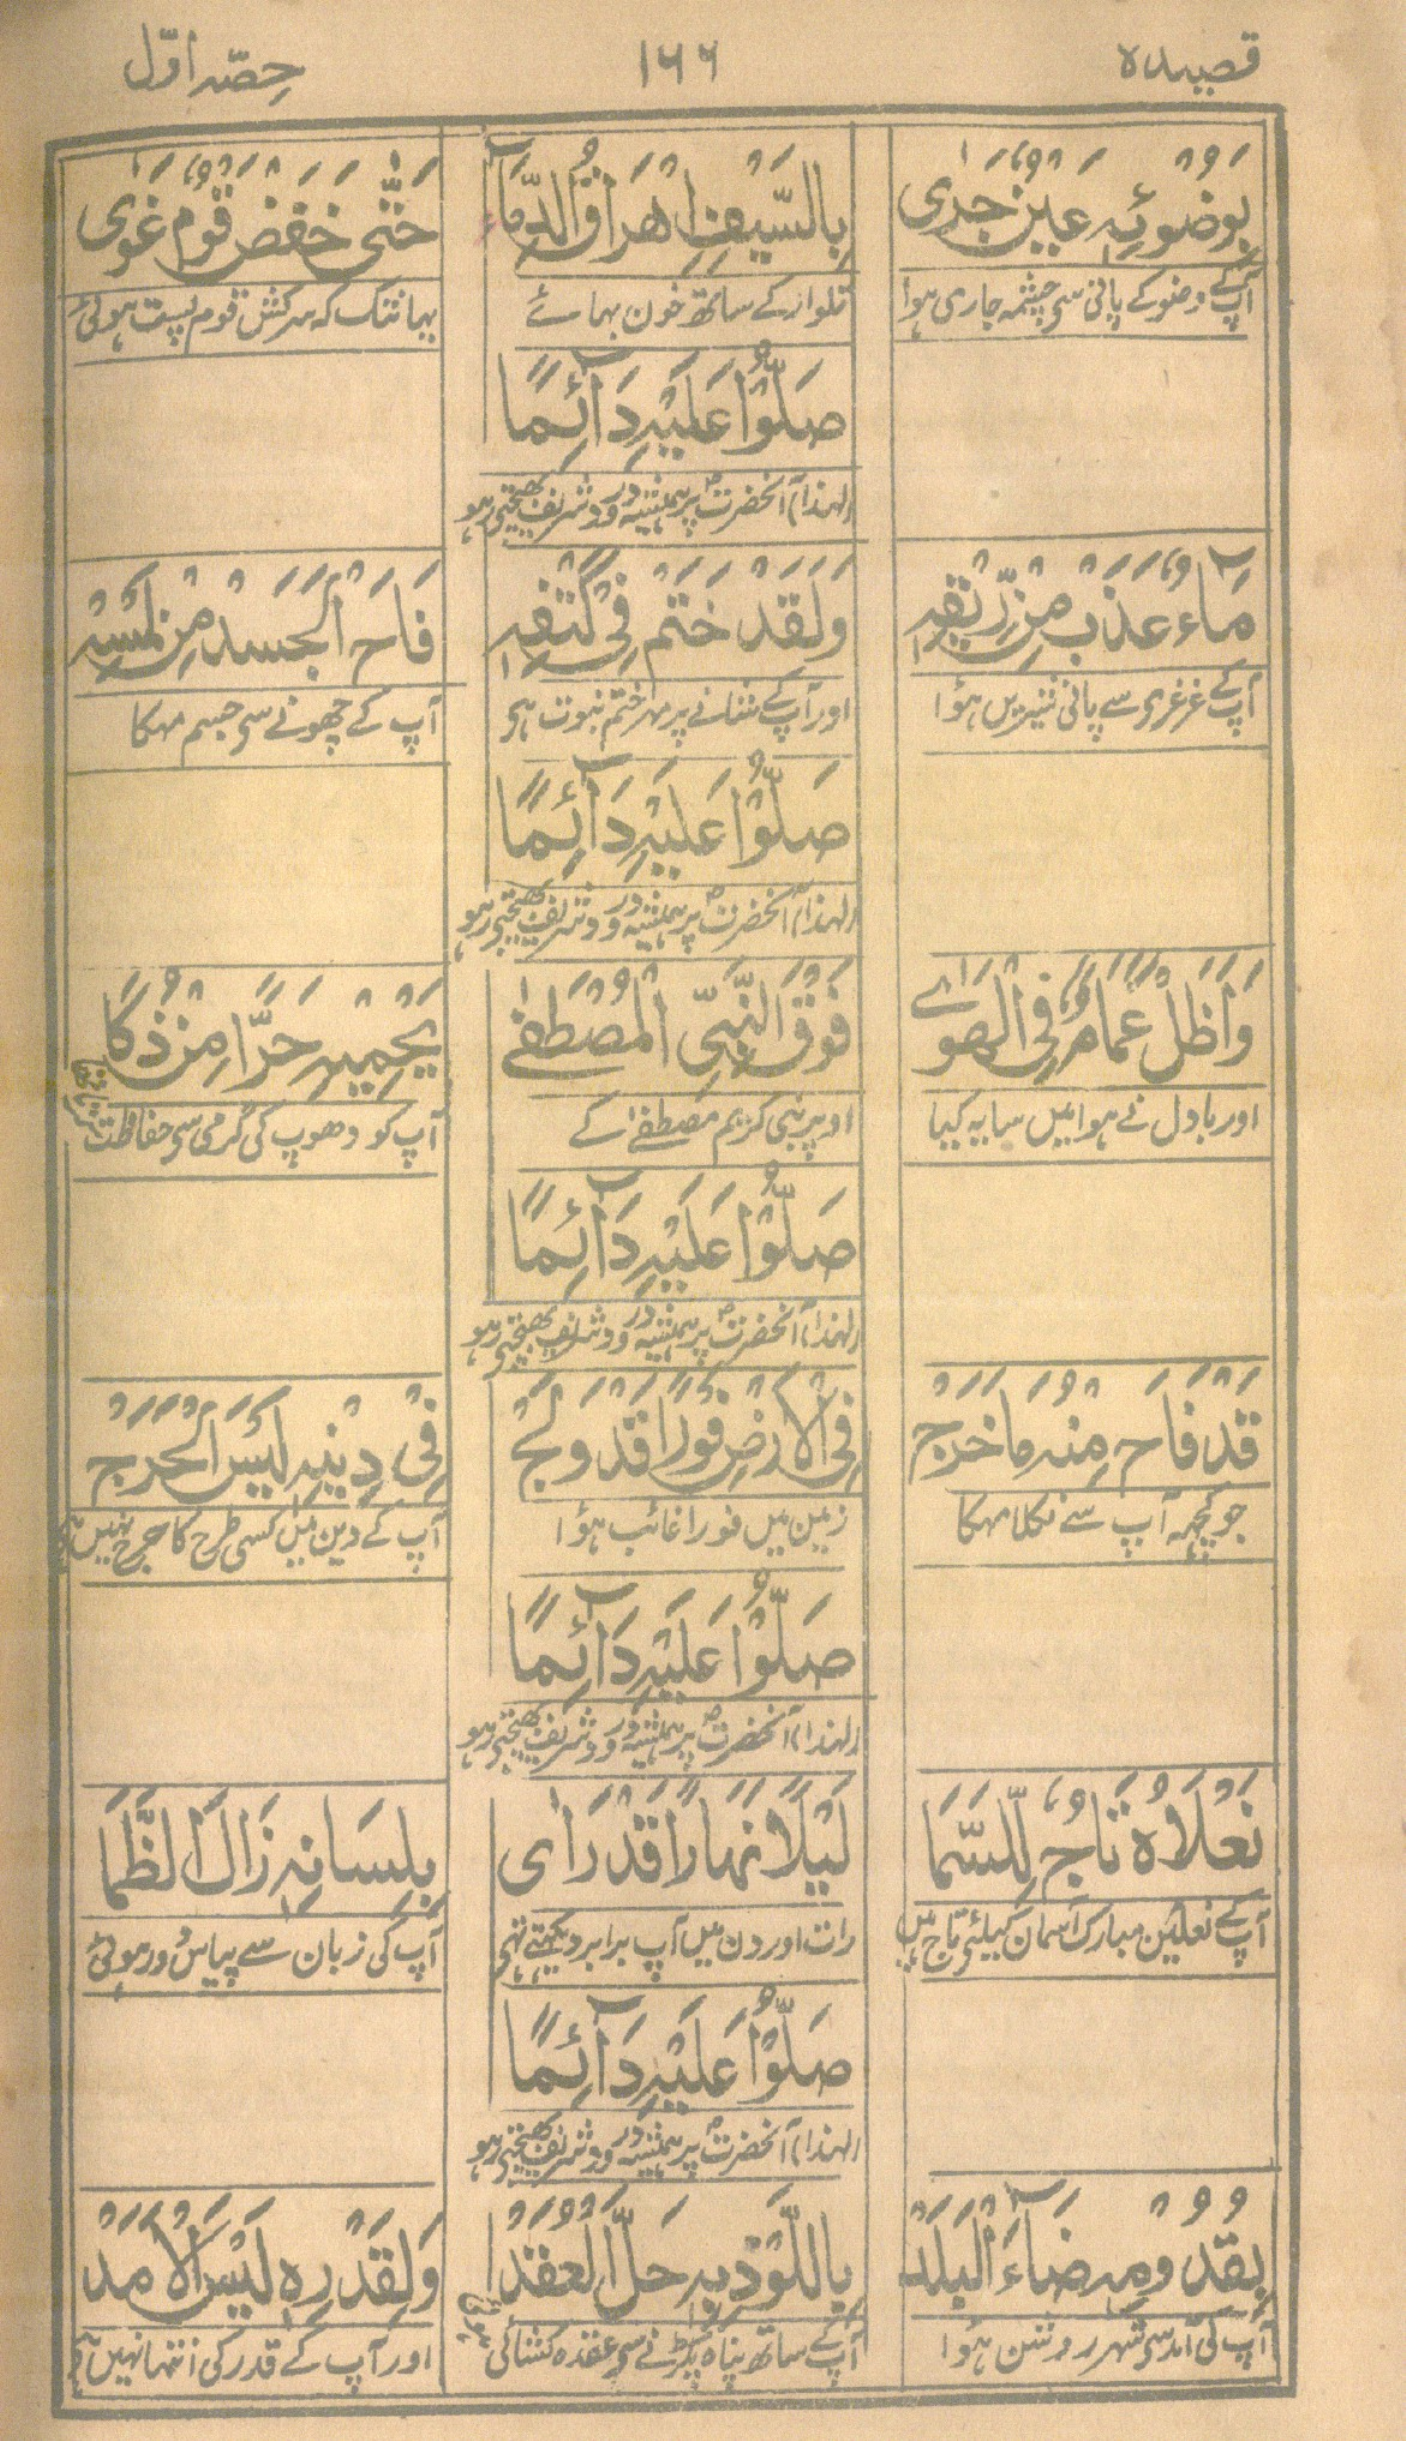 قصیدہ
۱۶۶
حصّہ اوّل
بِوُضُوْئِہٖ عَیْنٌ جَرٰی
بِالسَّیْفِ اِھْرَاقُ الدِّمَآءِ
حَتّٰی خَفَضْ قَوْمٌ غَوٰی
آپ کے وضو کے پانی سی چشمہ جاری ہوا
تلوار کے ساتھ خون بہائے
یہانتک کہ سرکش قوم پست ہوئی
صَلُّوْا عَلَیْہِ دَآئِمًا
(لہذا) آنحضرتؐ پر ہمیشہ درود شریف بھیجتی رہو
مَآءٌ عَذَبْ مِنْ رِّیْقِہٖ
وَلَقَدْ خَتَمْ فِیْ كَتْفِہٖ
فَاحَ الْجَسَدْ مِنْ لَمْسِہٖ
آپ کے غرغری سے پانی شیریں ہؤا
اور آپ کے شانے پر مہر ختم نبوت ہی
آپ کے چھونے سی جسم مہکا
صَلُّوْا عَلَیْہِ دَآئِمًا
(لہذا) آنحضرتؐ پر ہمیشہ درود شریف بھیجتی رہو
وَاَظَلَّ غَمَامٌ فِی الْھَوٰے
فَوْقَ النَّبِیِّ الْمُصْطَفٰے
یَحْمِیْہِ حَرًّا مِنْ ذُكَا
اور بادل نے ہوا میں سایہ کیا
اوپر نبی کریم مصطفےٰ کے
آپ کو دھوپ کی گرمی سی حفاظت
صَلُّوْا عَلَیْہِ دَآئِمًا
(لہذا) آنحضرتؐ پر ہمیشہ درود شریف بھیجتی رہو
قَدْ فَاحَ مِنْہُ مَا خَرَجْ
فِی الْاَرْضِ فَوْرًا قَدْ وَلَجْ
فِیْ دِیْنِہٖ لَیْسَ الْحَرَجْ
جو کچھہ آپ سے نکلا مہکا
زمین میں فوراً غائب ہؤا
آپ کے دین میں کسی طرح کا حرج نہیں
صَلُّوْا عَلَیْہِ دَآئِمًا
(لہذا) آنحضرتؐ پر ہمیشہ درود شریف بھیجتی رہو
نَعْلَاہُ تَاجٌ لِّلسَّمَا
لَیْلًا نَہَارًا قَدْ رَاٰی
بِلِسَانِہٖ زَالَ الظَّمَا
آپ کے نعلین مبارک آسمان کیلئے تاج ہیں
رات اور دن میں آپ برابر دیکھتے تہی
آپ کی زبان سے پیاس دور ہوئی
صَلُّوْا عَلَیْہِ دَآئِمًا
(لہذا) آنحضرتؐ پر ہمیشہ درود شریف بھیجتی رہو
بِقُدُوْمِہٖ ضَآءَ الْبَلَدْ
بِاللَّوْذِ بِہٖ حَلُّ الْعُقَدْ
وَلِقَدْرِہٖ لَیْسَ الْاَمَدْ
آپ کی آمد سی شہر روشن ہؤا
آپ کے ساتھ پناہ پکڑنے سی عقدہ کشائی
اور آپ کے قدر کی انتہا نہیں